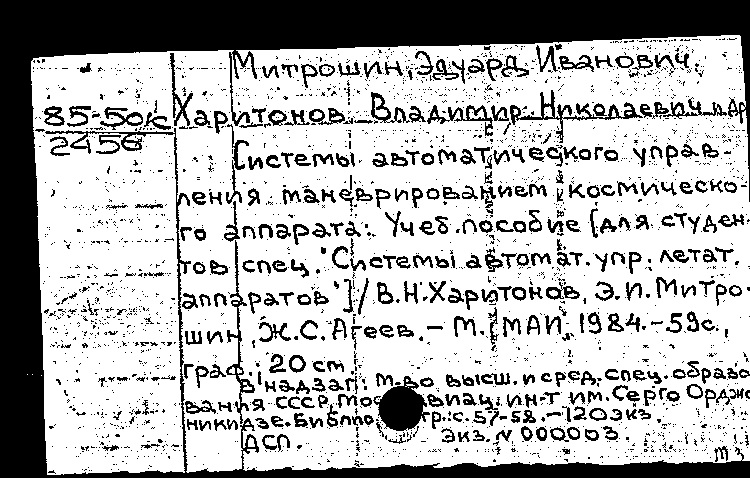 Митрошин, Эдуард Иванович.
85-50к Харитонов, Владимир Николаевич и др
2456
Системы автоматического управ-
ления маневрированием космическо-
го аппарата: Учеб. пособие [для студен-
тов спец. "Системы автомат. упр. летат.
аппаратов"] / В.Н.Харитонов, Э.И.Митро-
шин, Ж.С.Агеев. - М.: МАИ, 1984.-59с.,
граф.; 20 см.
В надзаг.: М-во высш. и сред. спец. образо
вания СССР, Моск авиац. ин-т им. Серго Орджо
никидзе. Библио тр.: с. 57-58. -120экз
ДСП. Экз. N 000003.